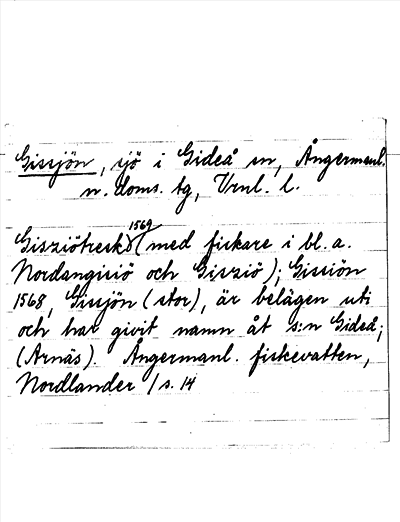 Gissjön, sjö i Gideå sn, Ångermanl.
n. doms. tg, Vrnl. l.
1569
Gisziötreskò (med fiskare i bl. a.
Nordangisiö och Gisziö); Gissiön
1568, Gissjön (stor), är belägen uti
och har givit namn åt s:n Gideå;
(Arnäs). Ångermanl. fiskevatten,
Nordlander / s. 14